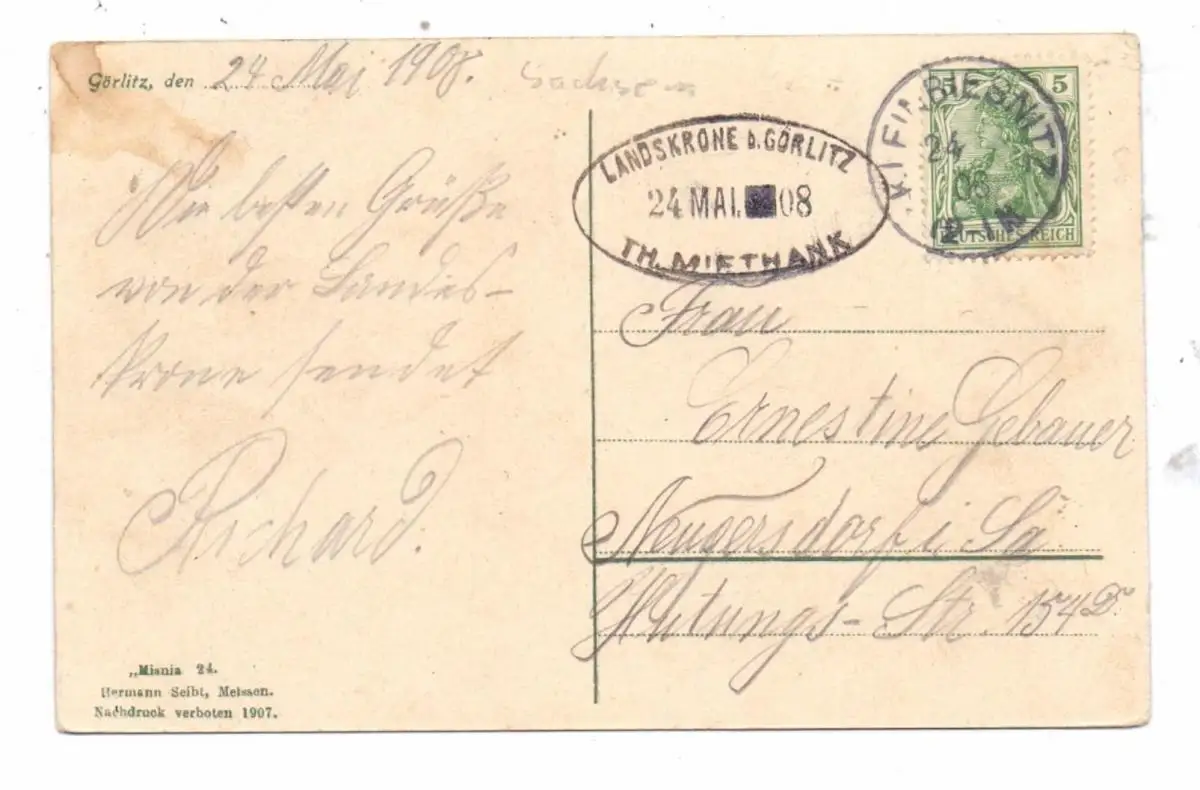 Görlitz, den 24 Mai 1908.
Sachsen
Die besten Grüße
von der Landes-
krone sendet
Richard.
„Misnia 24.
Hermann Seibt, Meissen.
Nachdruck verboten 1907.
LANDSKRONE b. GÖRLITZ
24 MAI. 08
TH. MIETHANK
KLEIN BIESNITZ
24
08
5 5
DEUTSCHES REICH
Frau
Ernestine Gebauer
Neugersdorf i Sa
Hutungs-Str. 154 D.